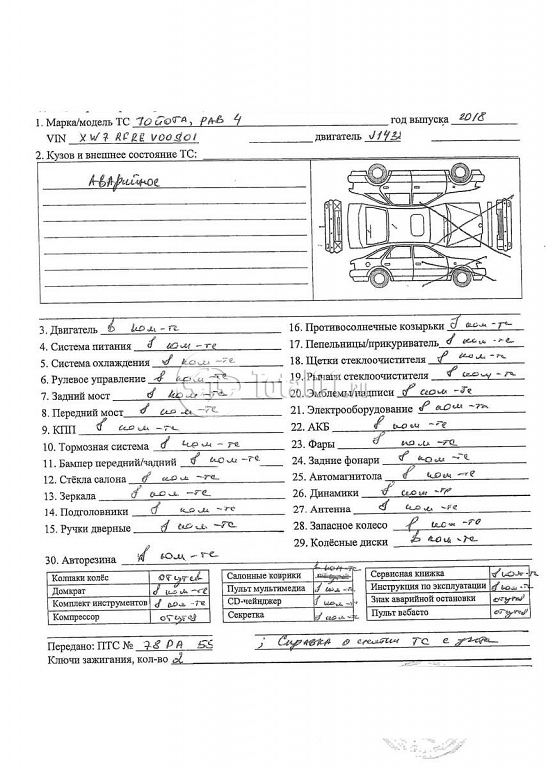 1. Марка/модель ТС ТОЙОТА, РАВ 4 год выпуска 2018
VIN XW7RFREV00S01 двигатель J1432
2. Кузов и внешнее состояние ТС:
Аварийное
3. Двигатель в ком-те
4. Система питания в ком-те
5. Система охлаждения в ком-те
6. Рулевое управление в ком-те
7. Задний мост в ком-те
8. Передний мост в ком-те
9. КПП в ком-те
10. Тормозная система в ком-те
11. Бампер передний/чадний в ком-те
12. Стёкла салона в ком-те
13. Зеркала в ком-те
14. Подголовники в ком-те
15. Ручки дверные в ком-те
16. Противосолнечные козырьки в ком-те
17. Пепельницы/прикуриватель в ком-те
18. Щетки стеклоочистителя в ком-те
19. Рычаги стеклоочистителя в ком-те
20. Эмблемы/надписи в ком-те
21. Электрооборудование в ком-те
22. АКБ в ком-те
23. Фары в ком-те
24. Задние фонари в ком-те
25. Автомагнитола в ком-те
26. Динамики в ком-те
27. Антенна в ком-те
28. Запасное колесо в ком-те
29. Колёсные диски в ком-те
30. Авторезина в ком-те
Колпаки колёс отсутств
Домкрат в ком-те
Комплект инструментов в ком-те
Компрессор отсутств
Салонные коврики в ком-те
Пульт мультимедиа в ком-те
CD-чейнджер в ком-те
Секретка в ком-те
Сервисная книжка в ком-те
Инструкция по эксплуатации в ком-те
Знак аварийной остановки отсутств
Пульт вебасто отсутств
Передано: ПТС № 78 РА 55 ; Справка о снятии ТС с учета
Ключи зажигания, кол-во 2